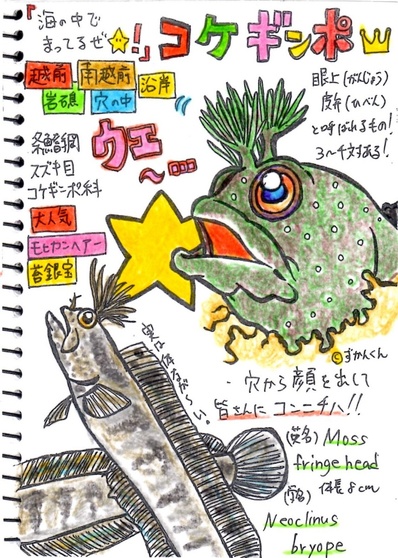 「海の中で
まってるぜ☆!」
コケギンポ
越前 南越前 沿岸
岩礁 穴の中
条鰭綱
スズキ目
コケギンポ科
ウエ
〜…
眼上(がんじょう)
皮弁(ひべん)
と呼ばれるもの!
3〜4対ある!
大人気
モヒカンヘアー
苔銀宝
©ずかんくん
実は体ながーい。
・穴から顔を出して
皆さんにコンニチハ!!
(英名) Moss
fringe head
体長8cm
(学名)
Neoclinus
bryope